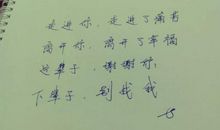 走进你，走进了痛苦
离开你，离开了幸福
这辈子，谢谢你，
下辈子，别找我